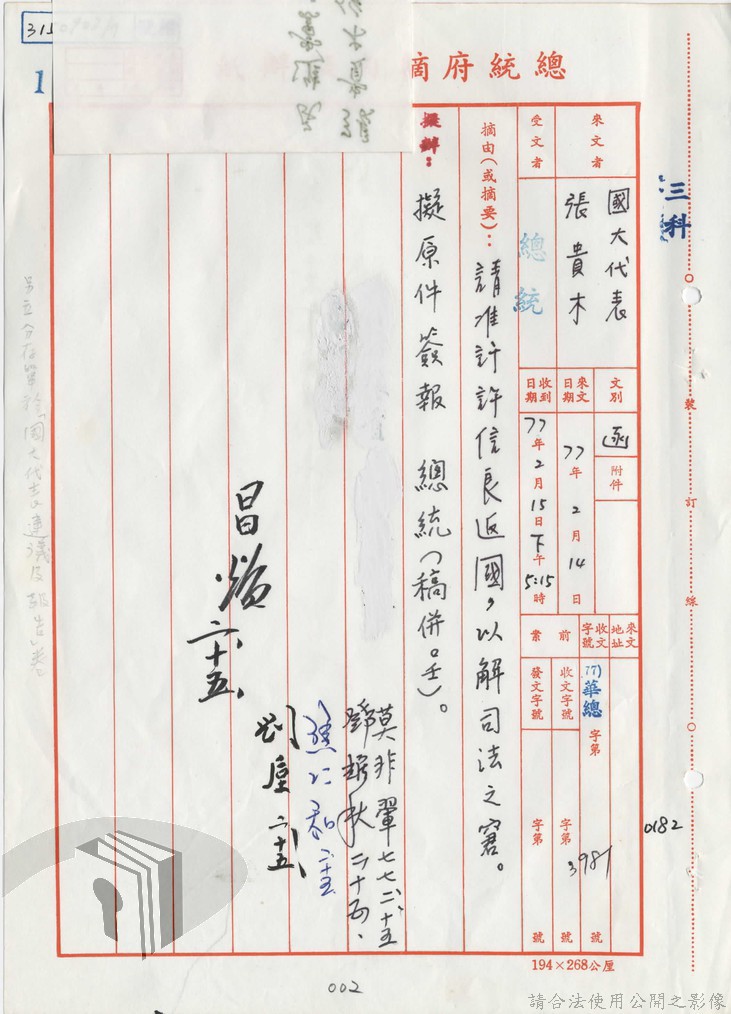 總統府摘
315
1
三科
來文者
國大代表
張貴木
受文者
總統
文別
函
附件
來文日期
77年2月14日
收到日期
77年2月15日下午5:15時
來文地址
收文字號
(77)華總
字第
3981
號
前案
收文字號
字第
號
發文字號
字第
號
0182
摘由(或摘要):請准許許信良返國,以解司法之窘。
擬辦:擬原件簽報 總統(稿併。壬)。
莫非翬七七、二、十五
二、十五、
二、十五
二、十五
昌煥
二、十五、
裝訂線
194×268公厘
002
請合法使用公開之影像